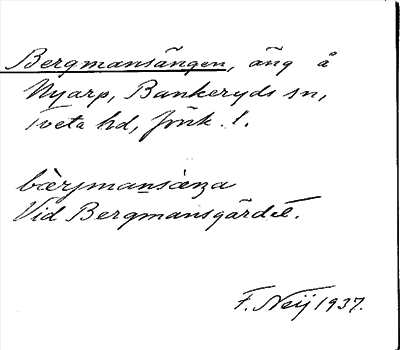 Bergmansängen, äng å
Nyarp, Bankeryds sn,
Tveta hd, Jönk. l.
bàrjmansàŋa
Vid Bergmansgärdet.
F. Neij 1937.